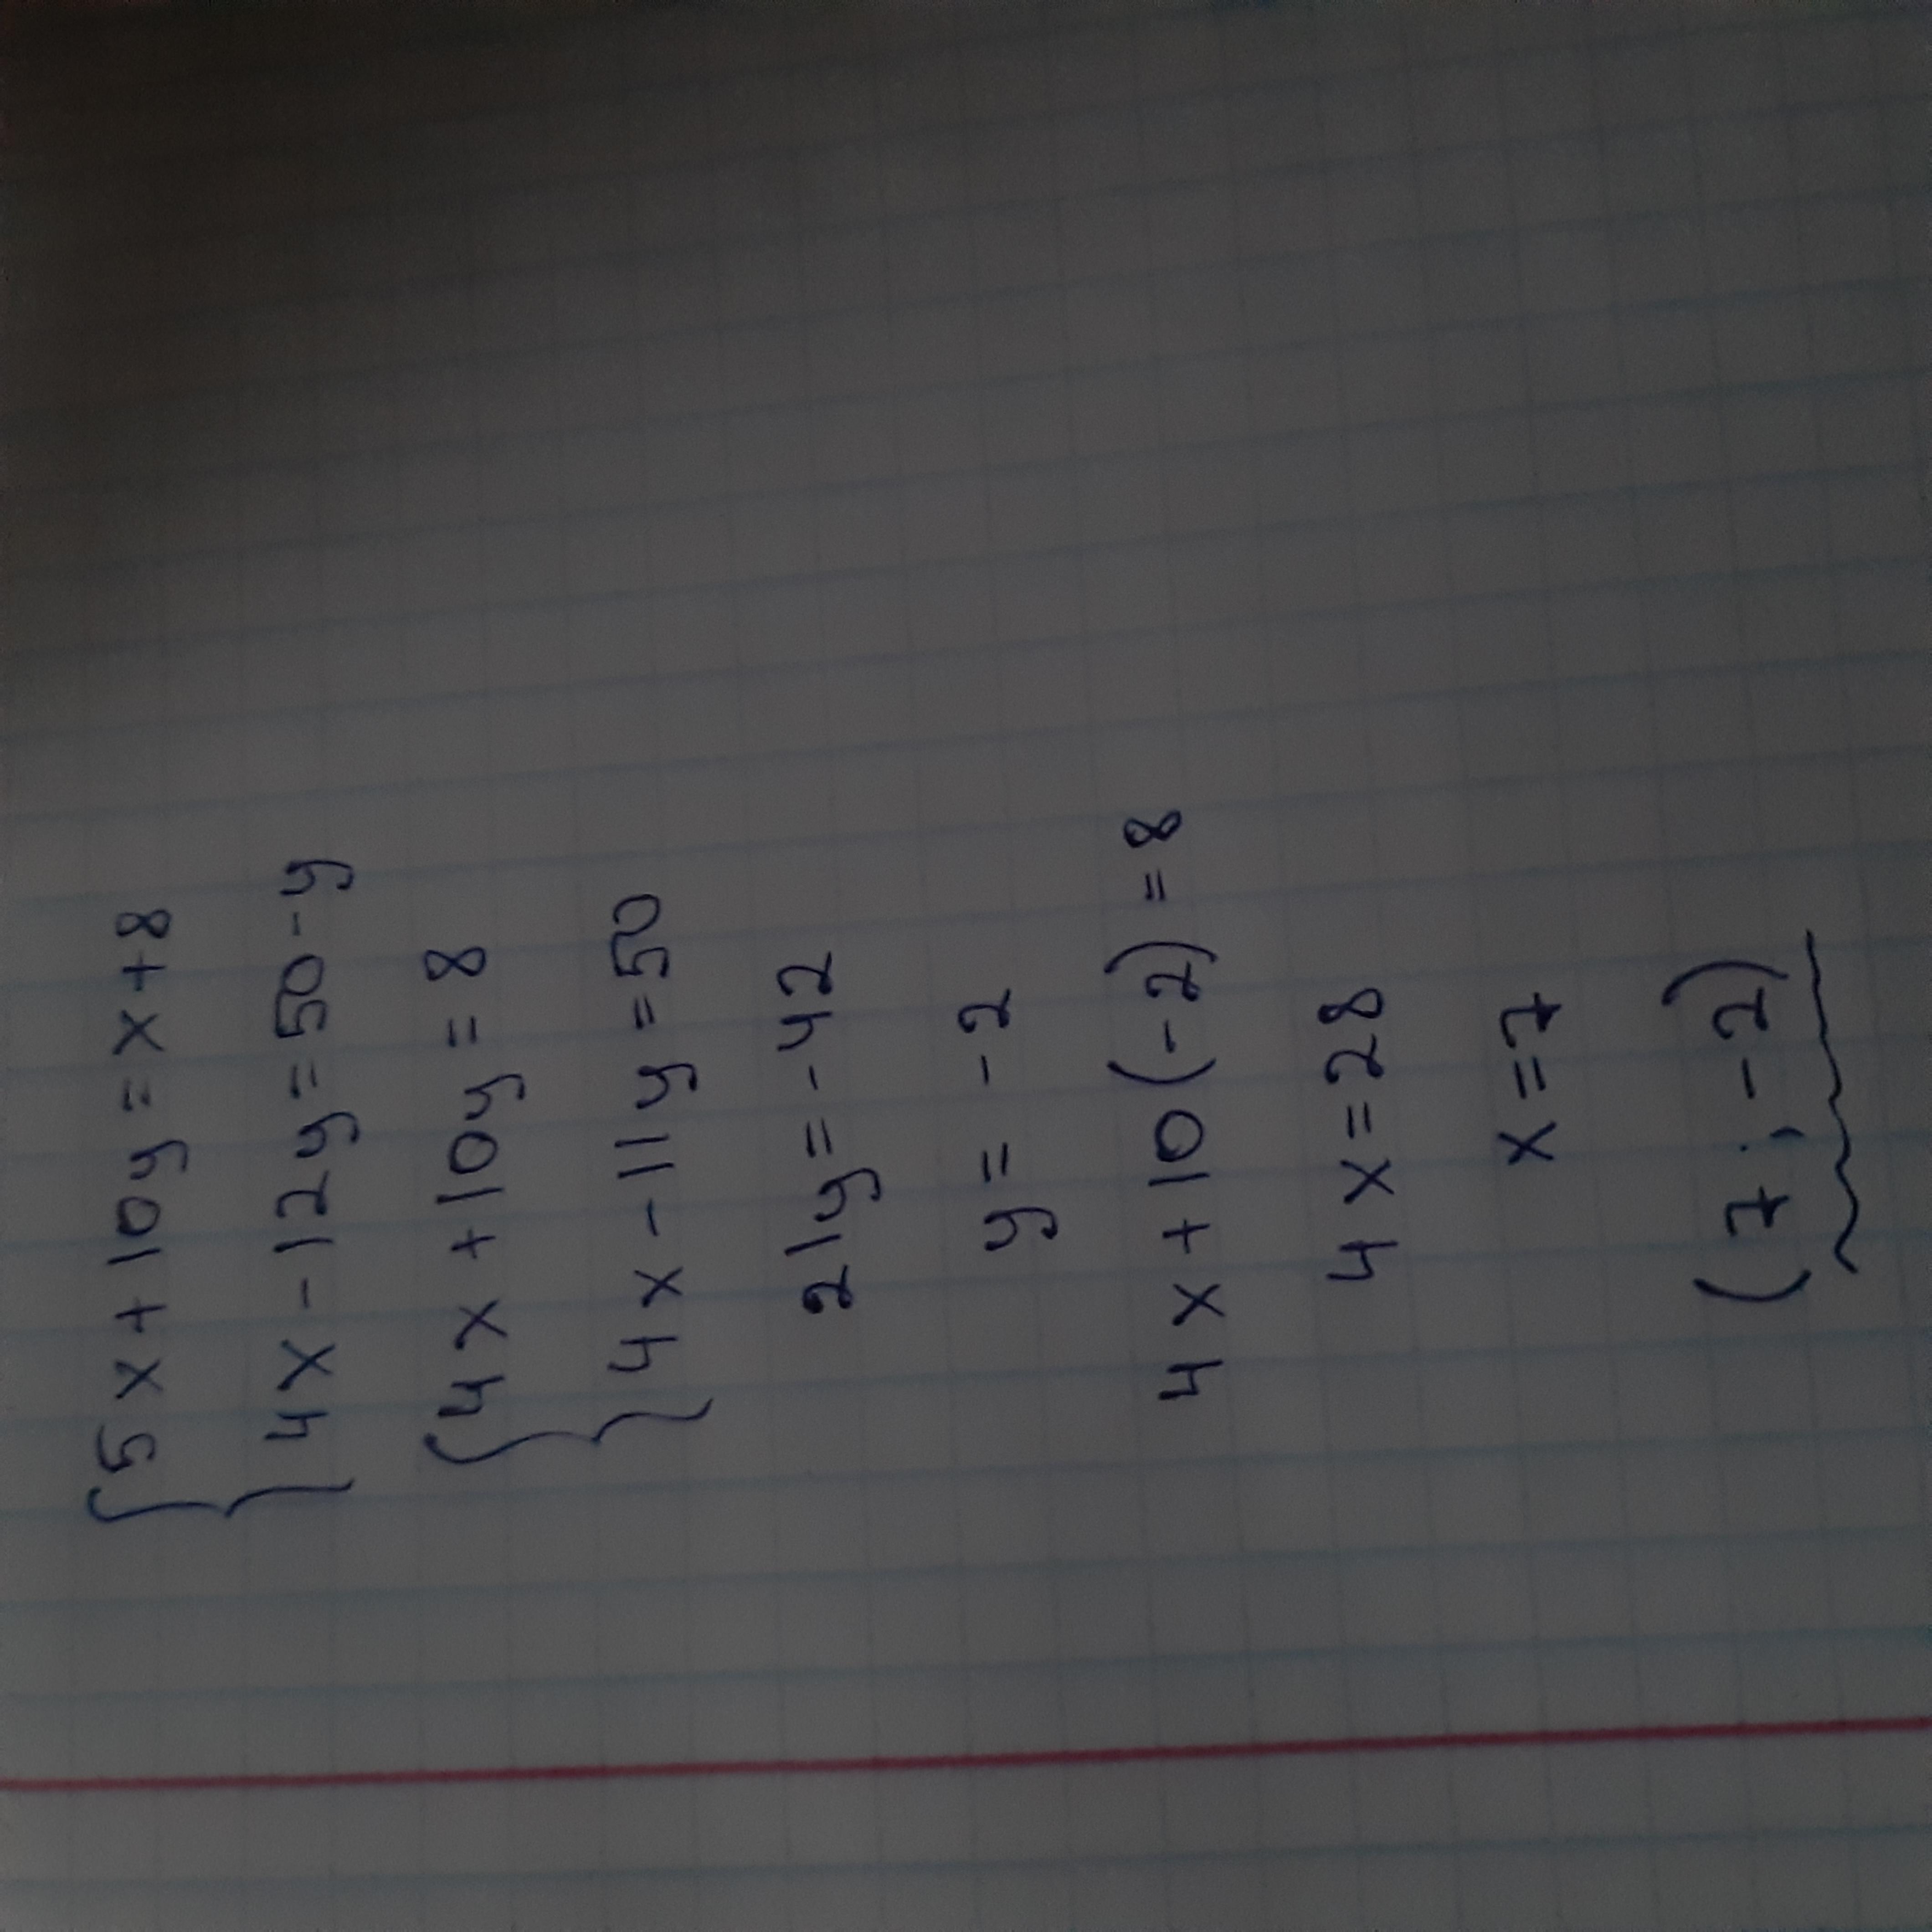 {5x + 10y = x + 8
4x - 12y = 50 - y
{4x + 10y = 8
4x - 11y = 50
21y = - 42
y = - 2
4x + 10(-2) = 8
4x = 28
x = 7
(7 ; - 2)